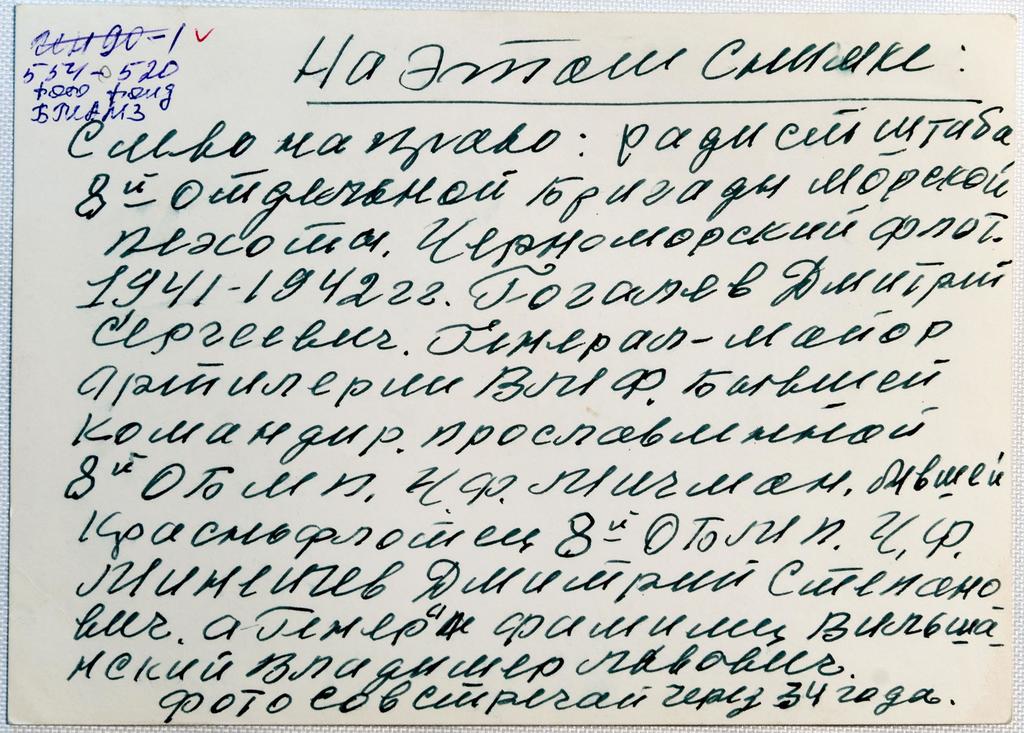 554-520
фото фонд
На этом снимке:
Слево направо: радист штаба
8й отдельной Бригады морской
пехоты. Черноморский флот.
1941-1942гг. Гогалев Дмитрий
Сергеевич. Генерал-майор
артилерии ВМФ. Бывшей
командир. прославленной
8й ОБМП. ЧФ. Мичман. бывшей
Краснофлотец 8й ОБМП. Ч.Ф.
Дмитрий Степано
вич. а Генерал фамилия Вильша-
нский Владимер Львович.
фото со встречай через 34 года.